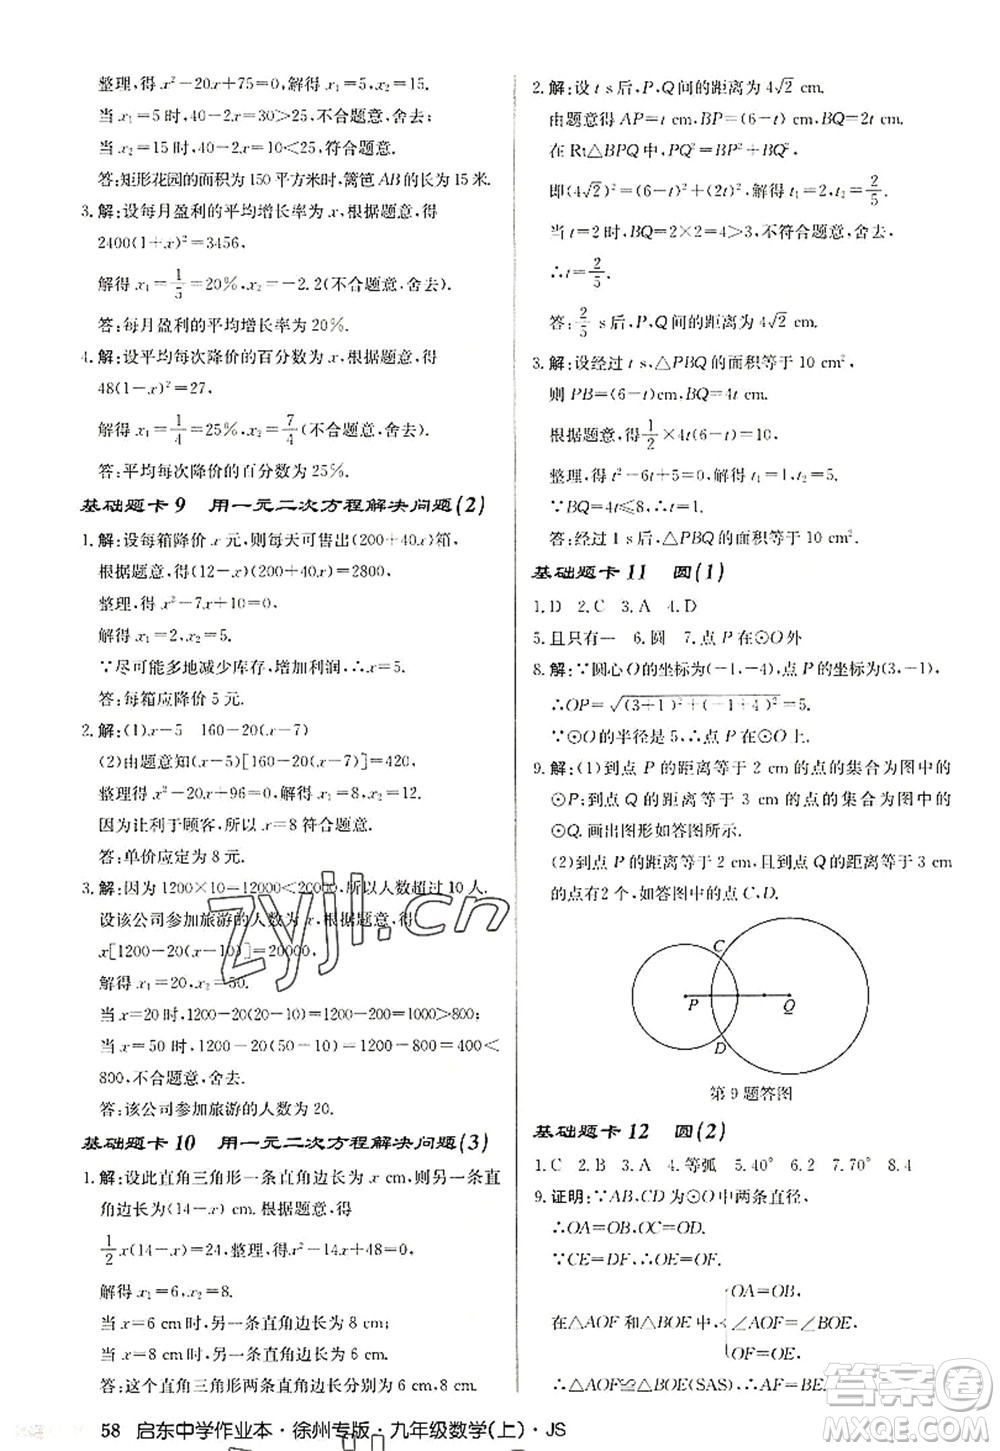 整理,得 x²－20x＋75＝0,解得 x₁＝5,x₂＝15.
当 x₁＝5 时,40－2x＝30＞25,不合题意,舍去;
当 x₂＝15 时,40－2x＝10＜25,符合题意.
答:矩形花园的面积为 150 平方米时,篱笆 AB 的长为 15 米.
3. 解:设每月盈利的平均增长率为 x,根据题意,得
2400(1＋x)²＝3456,
解得 x₁＝1/5＝20%,x₂＝－2.2(不合题意,舍去).
答:每月盈利的平均增长率为 20%.
4. 解:设平均每次降价的百分数为 x,根据题意,得
48(1－x)²＝27,
解得 x₁＝1/4＝25%,x₂＝7/4(不合题意,舍去).
答:平均每次降价的百分数为 25%.
基础题卡 9 用一元二次方程解决问题(2)
1. 解:设每箱降价 x 元,则每天可售出(200＋40x)箱,
根据题意,得(12－x)(200＋40x)＝2800,
整理,得 x²－7x＋10＝0,
解得 x₁＝2,x₂＝5.
∵尽可能多地减少库存,增加利润,∴x＝5.
答:每箱应降价 5 元.
2. 解:(1)x－5 160－20(x－7)
(2)由题意知(x－5)[160－20(x－7)]＝420,
整理,得 x²－20x＋96＝0,解得 x₁＝8,x₂＝12.
因为让利于顾客,所以 x＝8 符合题意.
答:单价应定为 8 元.
3. 解:因为 1200×10＝12000＜20000,所以人数超过 10 人.
设该公司参加旅游的人数为 x,根据题意,得
x[1200－20(x－10)]＝20000,
解得 x₁＝20,x₂＝50.
当 x＝20 时,1200－20(20－10)＝1000＞800;
当 x＝50 时,1200－20(50－10)＝400＜
800,不合题意,舍去.
答:该公司参加旅游的人数为 20.
基础题卡 10 用一元二次方程解决问题(3)
1. 解:设此直角三角形一条直角边长为 x cm,则另一条直角
边长为(14－x)cm,根据题意,得
1/2x(14－x)＝24,整理,得 x²－14x＋48＝0,
解得 x₁＝6,x₂＝8.
当 x＝6 cm 时,另一条直角边长为 8 cm;
当 x＝8 cm 时,另一条直角边长为 6 cm.
答:这个直角三角形两条直角边长为 6 cm,8 cm.
2. 解:设 t s 后,P,Q 间的距离为 4√2 cm.
由题意得 AP＝t cm,BP＝(6－t)cm,BQ＝2t cm.
在 Rt△BPQ 中,PQ²＝BP²＋BQ²,
即(4√2)²＝(6－t)²＋(2t)²,解得 t₁＝2,t₂＝2/5.
当 t＝2 时,BQ＝2×2＝4＞3,不符合题意,舍去,
∴t＝2/5.
答:2/5 s 后,P,Q 间的距离为 4√2 cm.
3. 解:设经过 t s,△PBQ 的面积等于 10 cm²,
则 PB＝(6－t)cm,BQ＝4t cm.
根据题意,得1/2×4t(6－t)＝10,
整理,得 t²－6t＋5＝0,解得 t₁＝1,t₂＝5.
∵BQ＝4t≤8,∴t≤2,∴t＝1.
答:经过 1 s 后,△PBQ 的面积等于 10 cm².
基础题卡 11 圆(1)
1. D 2. C 3. A 4. D
5. 且只有一 6. 圆 7. 点 P 在⊙O 外
8. 解:∵圆心 O 的坐标为(－1,－4),点 P 的坐标为(3,－1),
∴OP＝√(3＋1)²＋(－1＋4)²＝5.
∵⊙O 的半径是 5,∴点 P 在⊙O 上.
9. 解:(1)到点 P 的距离等于 2 cm 的点的集合为图中的
⊙P;到点 Q 的距离等于 3 cm 的点的集合为图中的
⊙Q. 画出图形如答图所示.
(2)到点 P 的距离等于 2 cm,且到点 Q 的距离等于 3 cm
的点有2 个,如答图中的点 C,D.
C
P
Q
D
第 9 题答图
基础题卡 12 圆(2)
1. C 2. B 3. A 4. 等弧 5. 40° 6. 2 7. 70° 8. 4
9. 证明:∵AB,CD 为⊙O 中两条直径,
∴OA＝OB,OC＝OD.
∵CE＝DF,∴OE＝OF.
在△AOF 和△BOE 中,{OA＝OB,
∠AOF＝∠BOE,
OF＝OE,
∴△AOF≌△BOE(SAS),∴AF＝BE.
58 启东中学作业本·徐州专版·九年级数学(上)·JS
zyjl.cn
答案圈
MXQE.COM